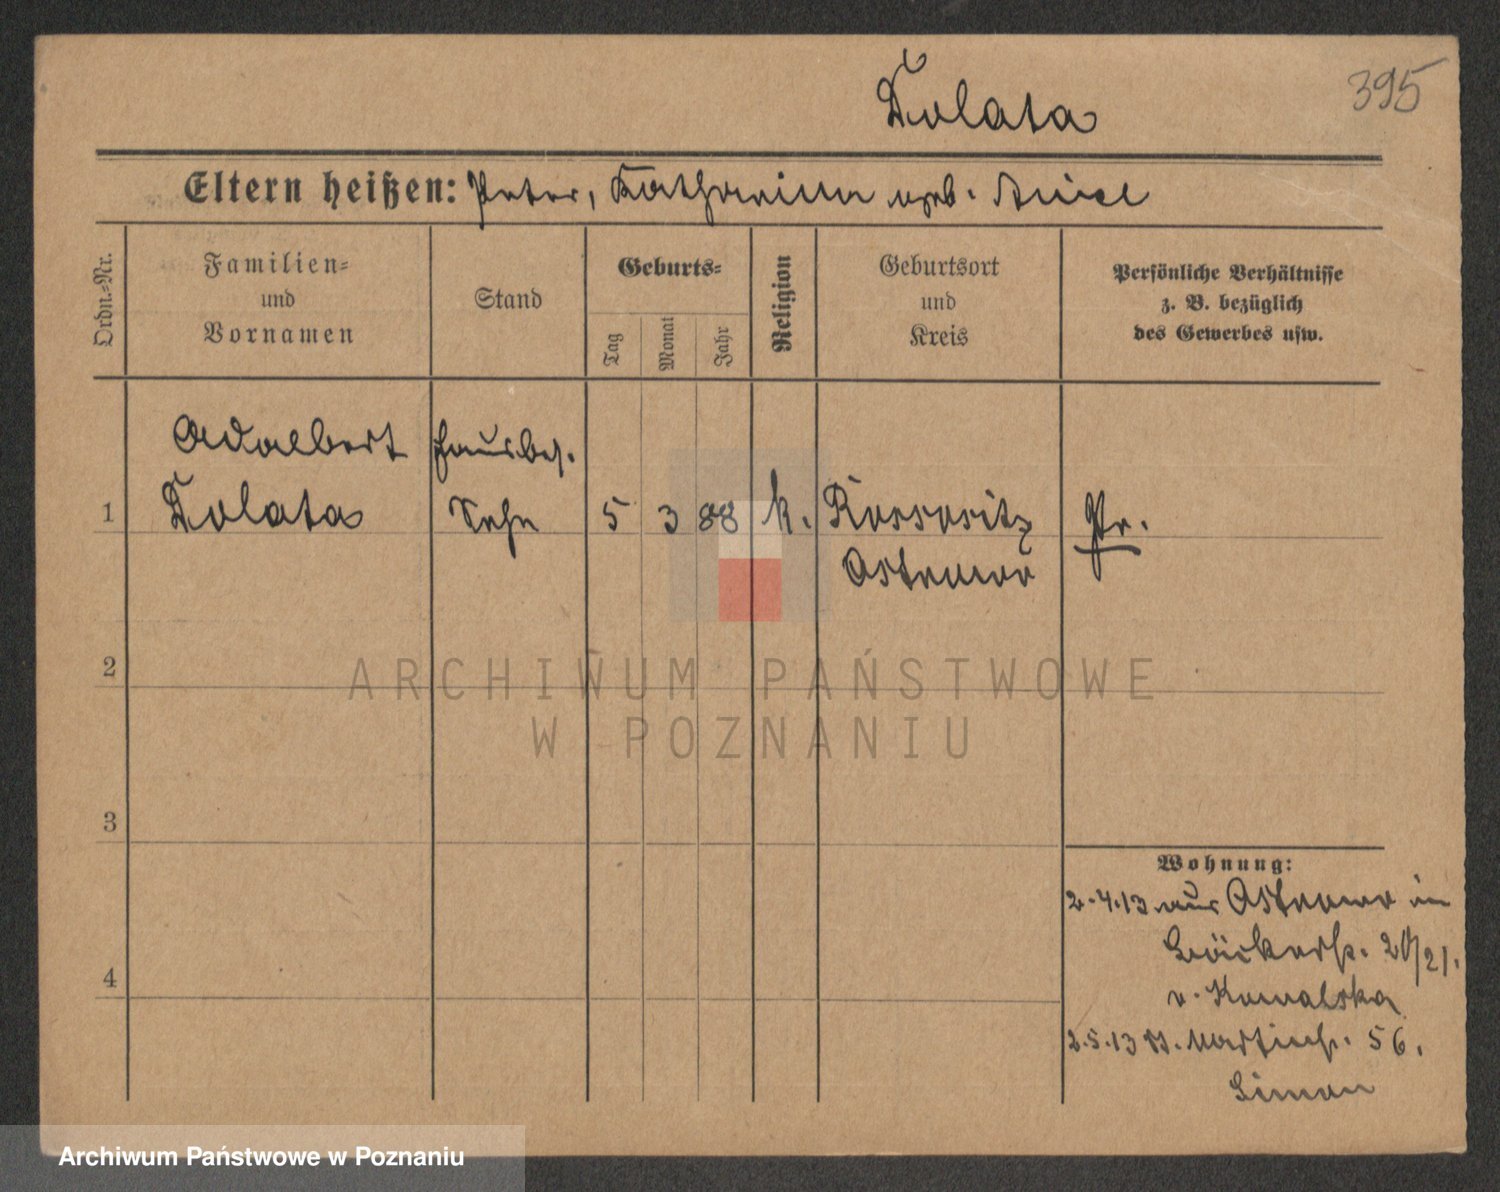 Tolata
395
Eltern heißen: Peter, Katharina geb.
Ordn.-Nr.
Familien-
und
Vornamen
Stand
Geburts-
Tag
Monat
Jahr
Religion
Geburtsort
und
Kreis
Persönliche Verhältnisse
z. B. bezüglich
des Gewerbes usw.
Adalbert
Hausbes.
1
Tolata
Sohn
5
3
88
k.
Rossositz
Pr.
Ostrowo
2
3
4
Wohnung:
2.4.13 aus Ostrowo in
Bäckerstr. 20/21.
b. Kowalska
2.5.13 St. Martinstr. 56.
Simon
ARCHIWUM PAŃSTWOWE
W POZNANIU
Archiwum Państwowe w Poznaniu